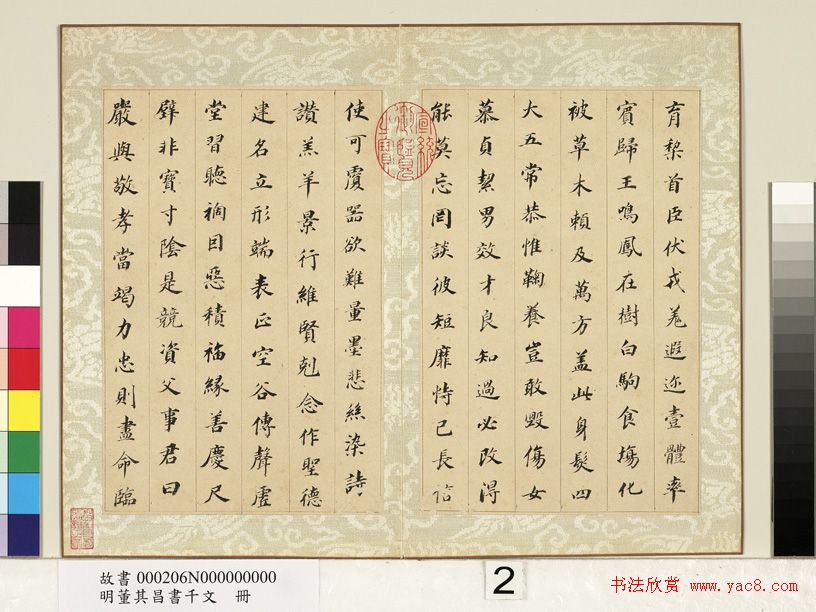 育棃首臣伏戎羌遐迩壹體率
賓歸王鳴鳳在樹白駒食場化
被草木賴及萬方蓋此身髮四
大五常恭惟鞠養豈敢毀傷女
慕貞絜男效才良知過必改得
能莫忘罔談彼短靡恃己長信
使可覆器欲難量墨悲絲染詩
讚羔羊景行維賢剋念作聖德
建名立形端表正空谷傳聲虛
堂習聽禍因惡積福緣善慶尺
璧非寶寸陰是競資父事君曰
嚴與敬孝當竭力忠則盡命臨
宣統御覽之寶
故書 000206N000000000
明董其昌書千文 冊
2
书法欣赏 www.yac8.com